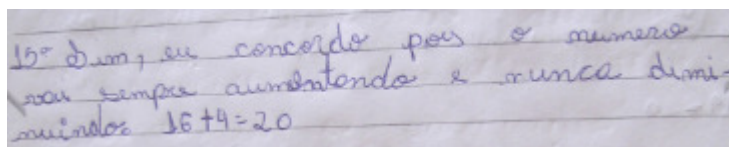 15º Sim, eu concordo pois o numero
vai sempre aumentando e nunca dimi-
nuindo: 16+4=20